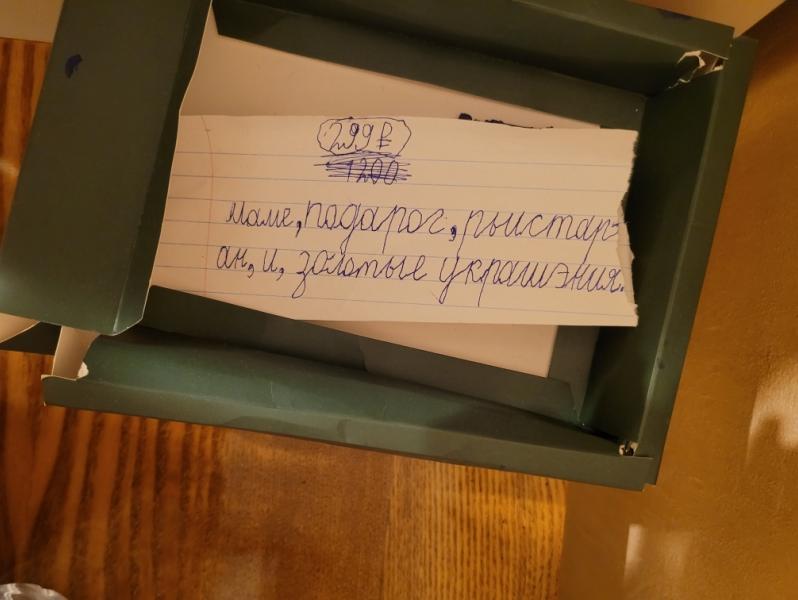 299₽
1200
маме, подарог, рыистар-
ан, и, золотые украшэния.